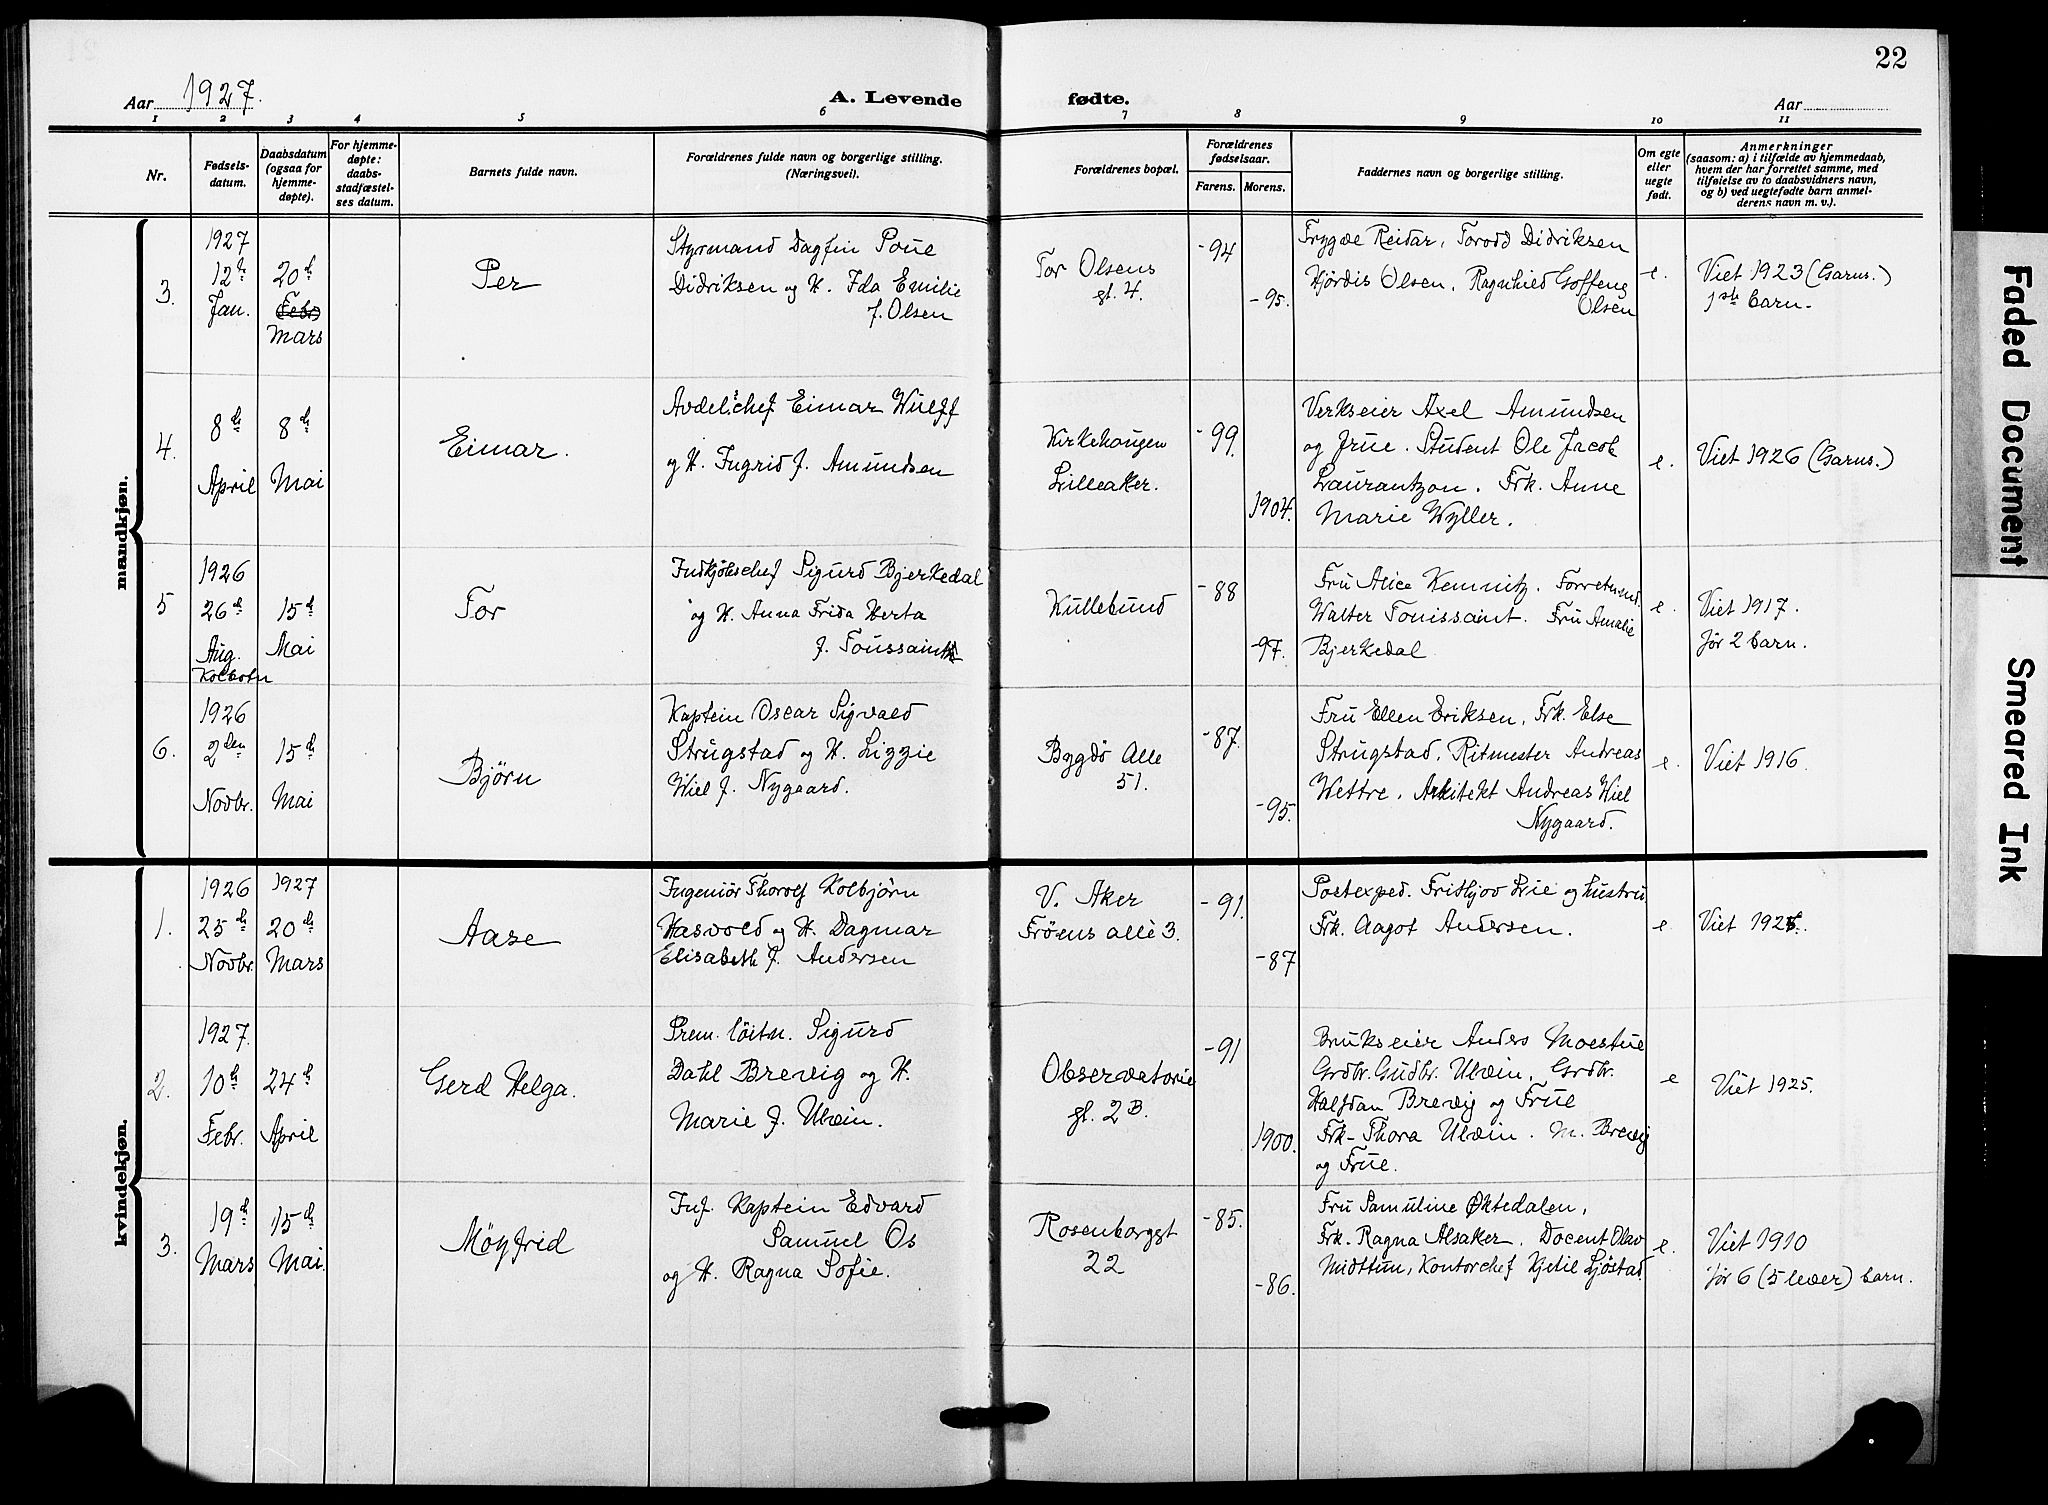 22
Aar 1927.
A. Levende
fødte.
Aar
1 2 3 4 5 6 7 8 9 10 11
Nr.
Fødsels-
datum.
Daabsdatum
(ogsaa for
hjemme-
døpte).
For hjemme-
døpte:
daabs-
stadfæstel-
ses datum.
Barnets fulde navn.
Forældrenes fulde navn og borgerlige stilling.
(Næringsvei).
Forældrenes bopæl.
Forældrenes
fødselsaar.
Farens. Morens.
Faddernes navn og borgerlige stilling.
Om egte
eller
uegte
født.
Anmerkninger
(saasom: a) i tilfælde av hjemmedaab,
hvem der har forrettet samme, med
tilføielse av to daabsvidners navn,
og b) ved uegtefødte barn anmel-
derens navn m. v.).
mandkjøn.
3.
1927
12te
Jan.
20de
Febr.
Mars
Per
Styrmand Dagfin Poue
Didriksen og H. Ida Emilie
f. Olsen
Tor Olsens
gt. 4.
-94
-95.
Trygve Reidar, Torodd Didriksen
Hjördis Olsen, Ragnhild Goffeng
Olsen
e.
Viet 1923 (Garns.)
1ste barn.
4.
8de
April
8de
Mai
Eimar.
Avdel.schef Eimar Wulff
og H. Ingrid f. Amundsen
Kirkehaugen
Lilleaker.
-99.
1904.
Verkseier Axel Amundsen
og frue. Student Ole Jacob
Laurantzon. Frk. Anne
Marie Wyller.
e.
Viet 1926 (Garns.)
5
1926
26de
Aug.
Kolbotn
15de
Mai
Tor
Indkjöbschef Sigurd Bjerkedal
og H. Anna Frida Herta
f. Toussaint
Kullebund
-88
-97.
Fru Alice Kemnitz. Forretnmd.
Walter Touissaint. Fru Amalie
Bjerkedal
e.
Viet 1917.
før 2 barn.
6.
1926
2den
Novbr.
15de
Mai
Björn
Kaptein Oscar Sigvald
Strugstad og H. Lizzie
Wiel f. Nygaard.
Bygdö Alle
51.
-87.
-95.
Fru Ellen Eriksen, Frk. Else
Strugstad, Ritmester Andreas
Wettre, Arkitekt Andreas Wiel
Nygaard.
e.
Viet 1916.
kvindekjøn.
1.
1926
25de
Novbr.
1927
20de
Mars
Aase
Ingeniör Thorolf Kolbjörn
Hasvold og H. Dagmar
Elisabeth f. Andersen
V. Aker
Fröens allè 3.
-91.
-87
Postexped. Frithjov Lie og hustru
Frk. Aagot Andersen.
e
Viet 192
2.
1927.
10de
Febr.
24de
April
Gerd Helga.
Prem. löitn. Sigurd
Dahl Brevig og H.
Marie f. Ulvin.
Observatorie
gt. 2B.
-91
1900.
Brukseier Anders Moestue
Grdbr. Gudbr. Ulvin, Grdbr.
Halfdan Brevig og Frue
Frk. Thora Ulvin. M. Brevig
og Frue.
e
Viet 1925.
3.
19de
Mars
15de
Mai.
Möyfrid
Inf. Kaptein Edvard
Samuel Os
og H. Ragna Sofie.
Rosenborggt
22
-85.
-86.
Fru Samuline Øktedalen,
Frk. Ragna Alsaker. Docent Olav
Midttun, Kontorchef Kjetil Sjöstad.
e.
Viet 1910
før 6 (5 lever) barn.
Faded Document
Smeared Ink